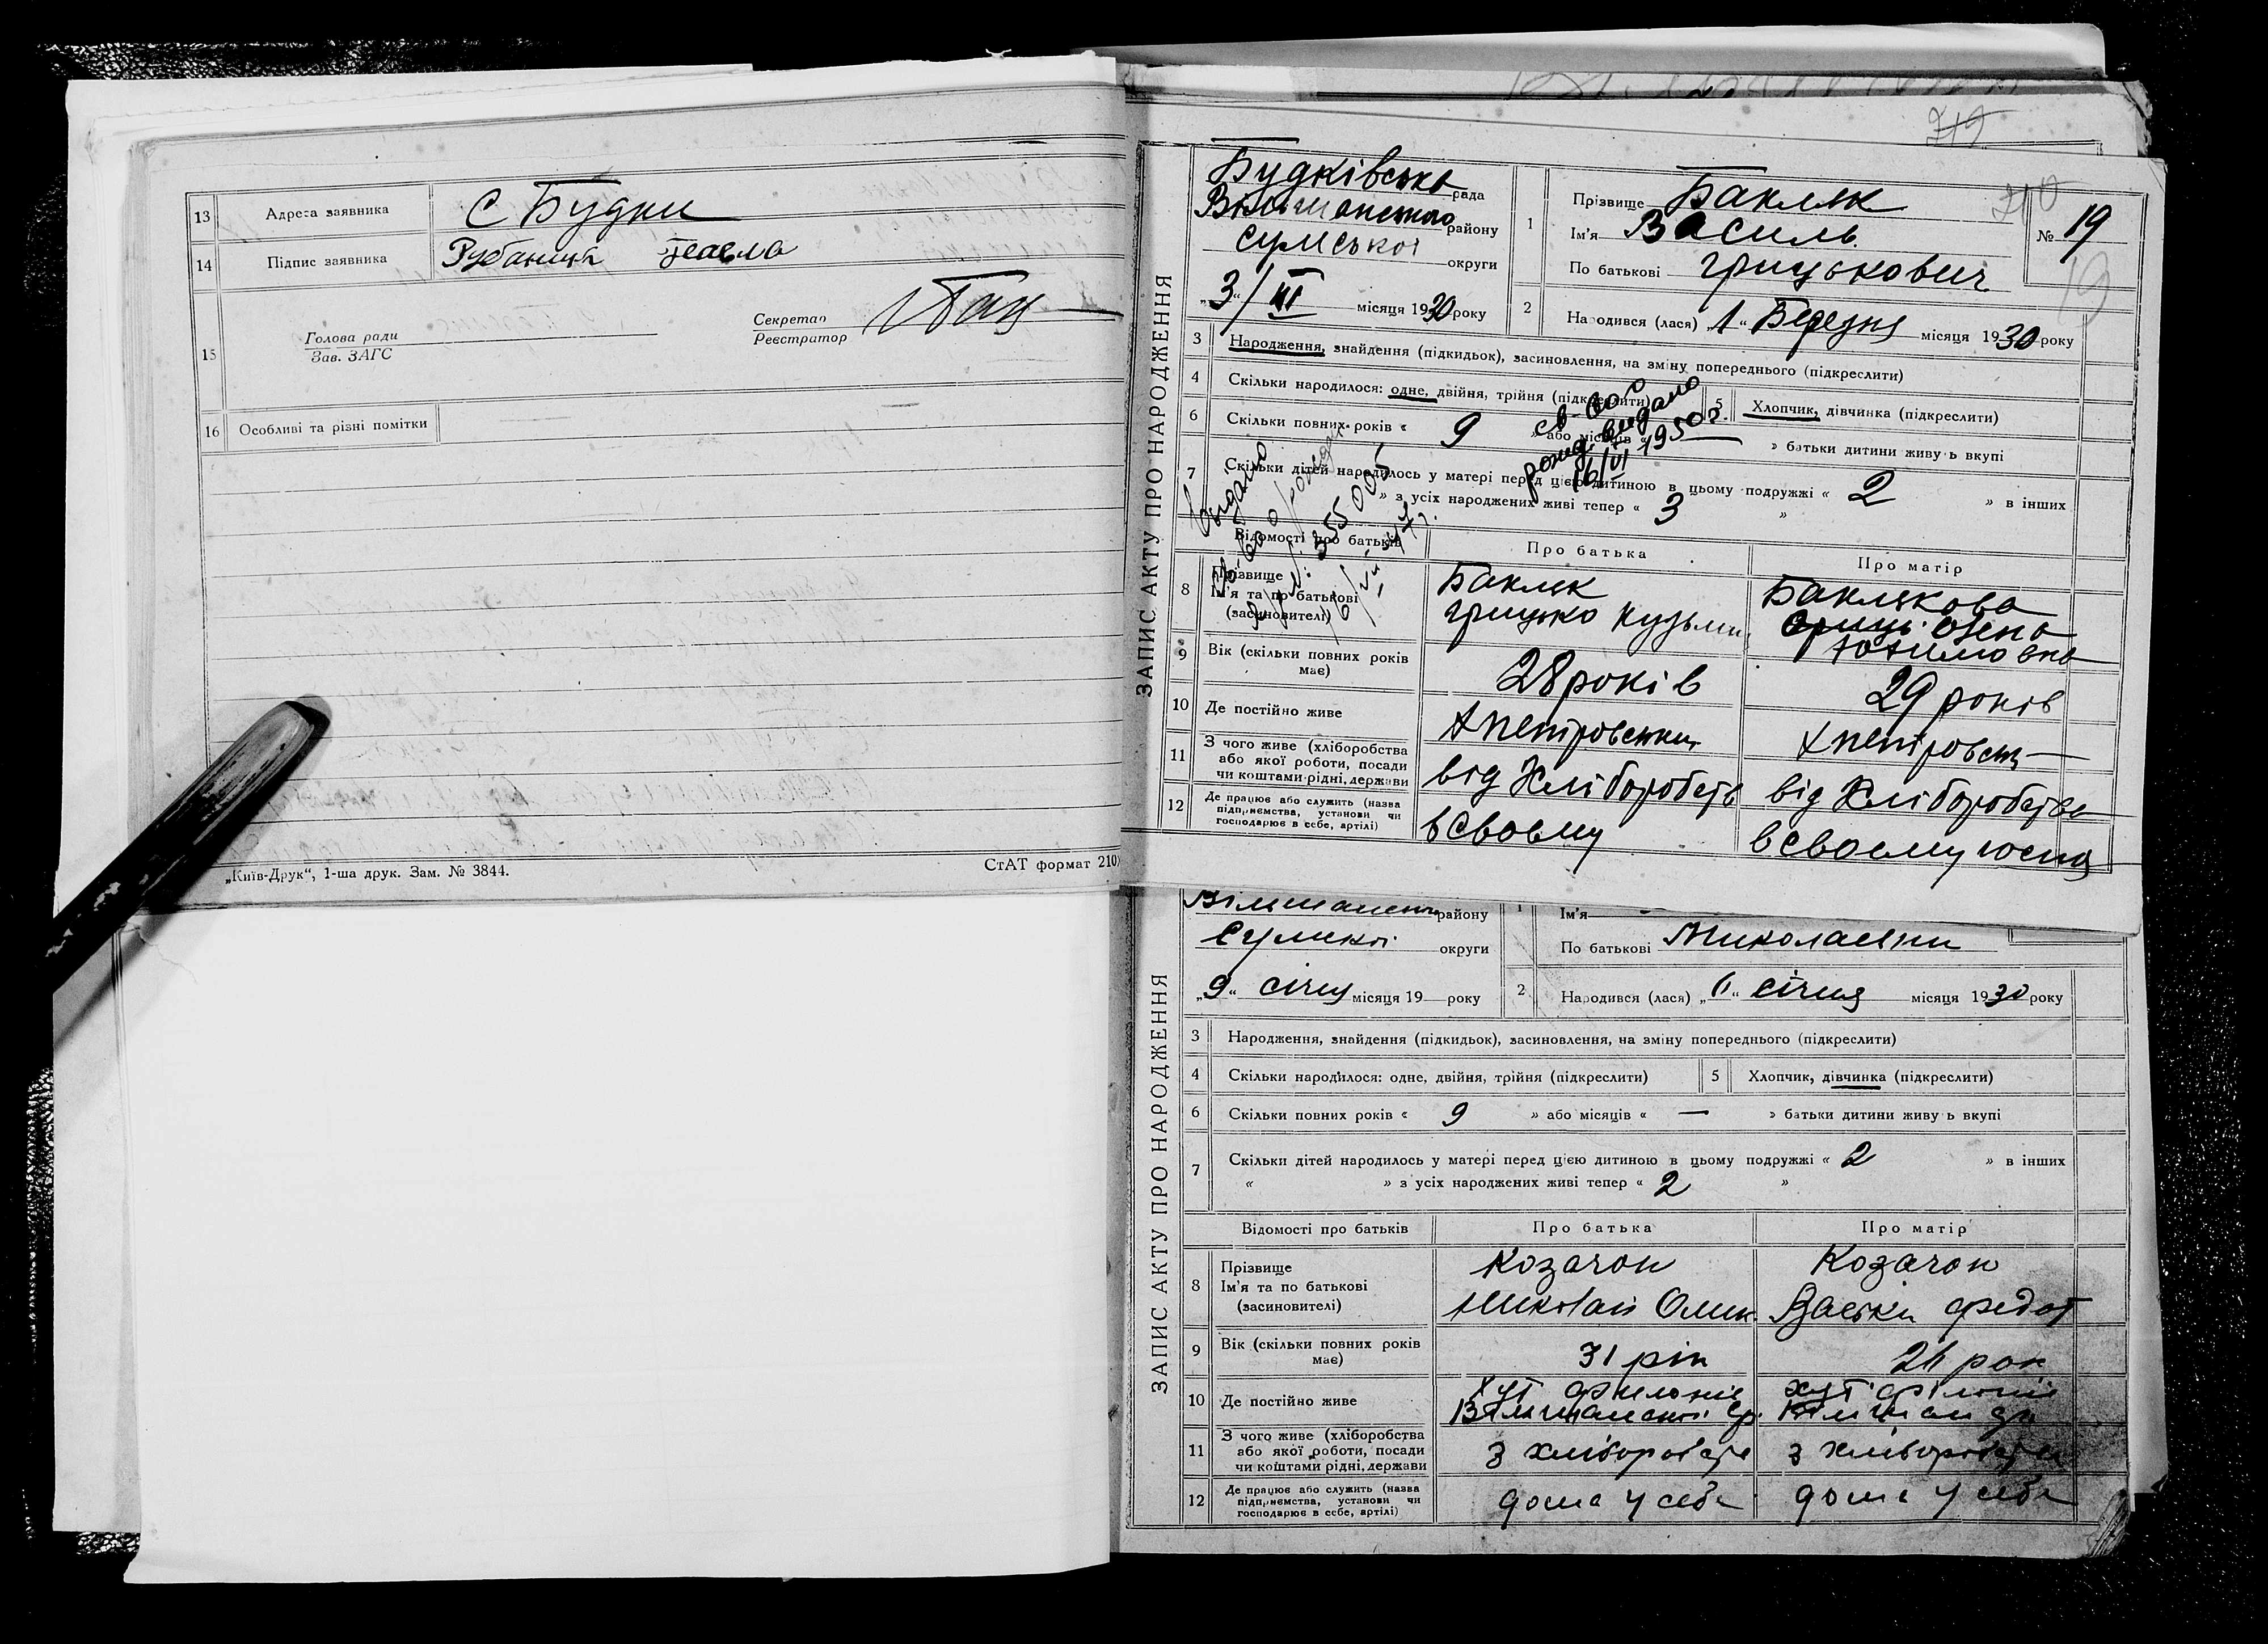 13 Адреса заявника С Будки
14 Підпис заявника
15 Голова ради
Зав. ЗАГС
Секретар
Реєстратор
16 Особливі та різні помітки
„Київ-Друк“, 1-ша друк. Зам. № 3844.
СтАТ формат 210
719
ЗАПИС АКТУ ПРО НАРОДЖЕННЯ
Будківська рада
Вільшанського району
Сумської округи
„3“/III місяця 1930 року
1 Прізвище Бакляк
Ім'я Василь
По батькові Грицькович
710
№ 19
19
2 Народився (лася) „1“ Березня місяця 1930 року
3 Народження, знайдення (підкидьок), засиновлення, на зміну попереднього (підкреслити)
4 Скільки народилося: одне, двійня, трійня (підкреслити)
5 Хлопчик, дівчинка (підкреслити)
6 Скільки повних років « 9 » або місяців « — » батьки дитини живуть вкупі
св-во
рожд. видано
16/VI 1950 г.
7 Скільки дітей народилось у матері перед цією дитиною в цьому подружжі « 2 » в інших
« » з усіх народжених живі тепер « 3 »
Видано
355005
Відомості про батьків Про батька Про матір
8 Прізвище
Ім'я та по батькові
(засиновителі)
Бакляк
Грицько Кузьм.
Баклякова
9 Вік (скільки повних років має) 28 років 29 років
10 Де постійно живе
11 З чого живе (хліборобства
або якої роботи, посади
чи коштами рідні, держави
від Хліборобств від Хліборобства
12 Де працює або служить (назва
підприємства, установи чи
господарює в себе, артілі)
в своєму в своєму госпо
ЗАПИС АКТУ ПРО НАРОДЖЕННЯ
Вільшанськ району
Сумської округи
„9“ січня місяця 19 року
1 Ім'я
По батькові Миколаєвни
2 Народився (лася) „6“ січня місяця 1930 року
3 Народження, знайдення (підкидьок), засиновлення, на зміну попереднього (підкреслити)
4 Скільки народилося: одне, двійня, трійня (підкреслити)
5 Хлопчик, дівчинка (підкреслити)
6 Скільки повних років « 9 » або місяців « — » батьки дитини живуть вкупі
7 Скільки дітей народилось у матері перед цією дитиною в цьому подружжі « 2 » в інших
« » з усіх народжених живі тепер « 2 »
Відомості про батьків Про батька Про матір
8 Прізвище
Ім'я та по батькові
(засиновителі)
Козачок Козачок
Николай Федот
9 Вік (скільки повних років має) 31 рік
10 Де постійно живе
11 З чого живе (хліборобства
або якої роботи, посади
чи коштами рідні, держави
з хліборобств з хліборобств
12 Де працює або служить (назва
підприємства, установи чи
господарює в себе, артілі)
дома у себе дома у себе